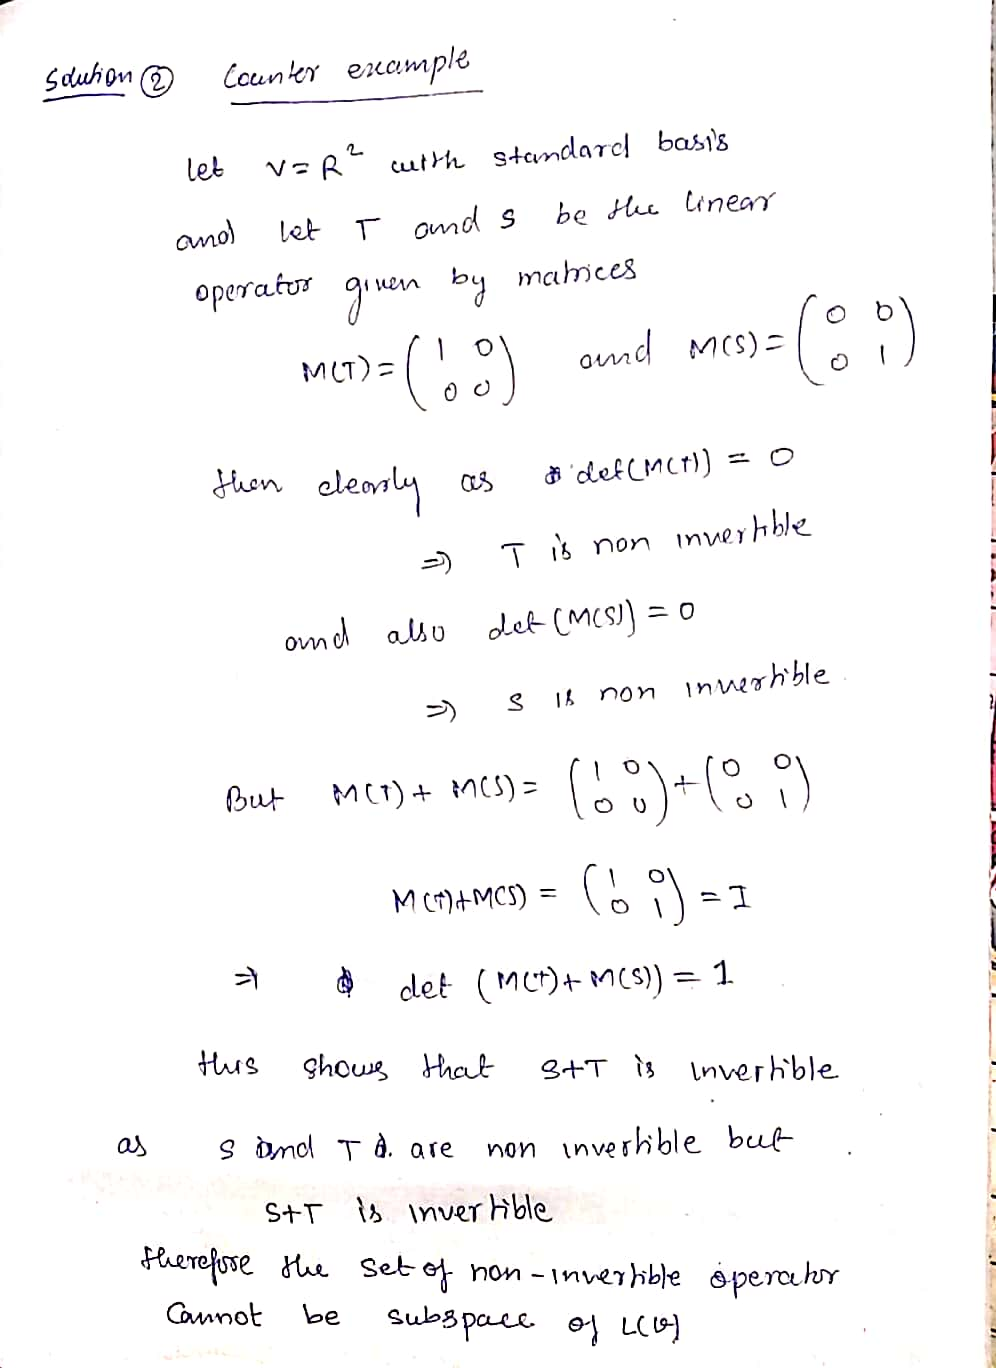 Solution ② Counter example
let V = R² with standard basis
and let T and S be the linear
operator given by matrices
M(T) = (1 0 0 0) and M(S) = (0 0 0 1)
then clearly as det(M(T)) = 0
⇒ T is non invertible
and also det (M(S)) = 0
⇒ S is non invertible
But M(T) + M(S) = (1 0 0 0) + (0 0 0 1)
M(T)+M(S) = (1 0 0 1) = I
⇒ det (M(T) + M(S)) = 1
this shows that S+T is invertible
as S and T are non invertible but
S+T is invertible
therefore the set of non-invertible operator
Cannot be subspace of L(V)